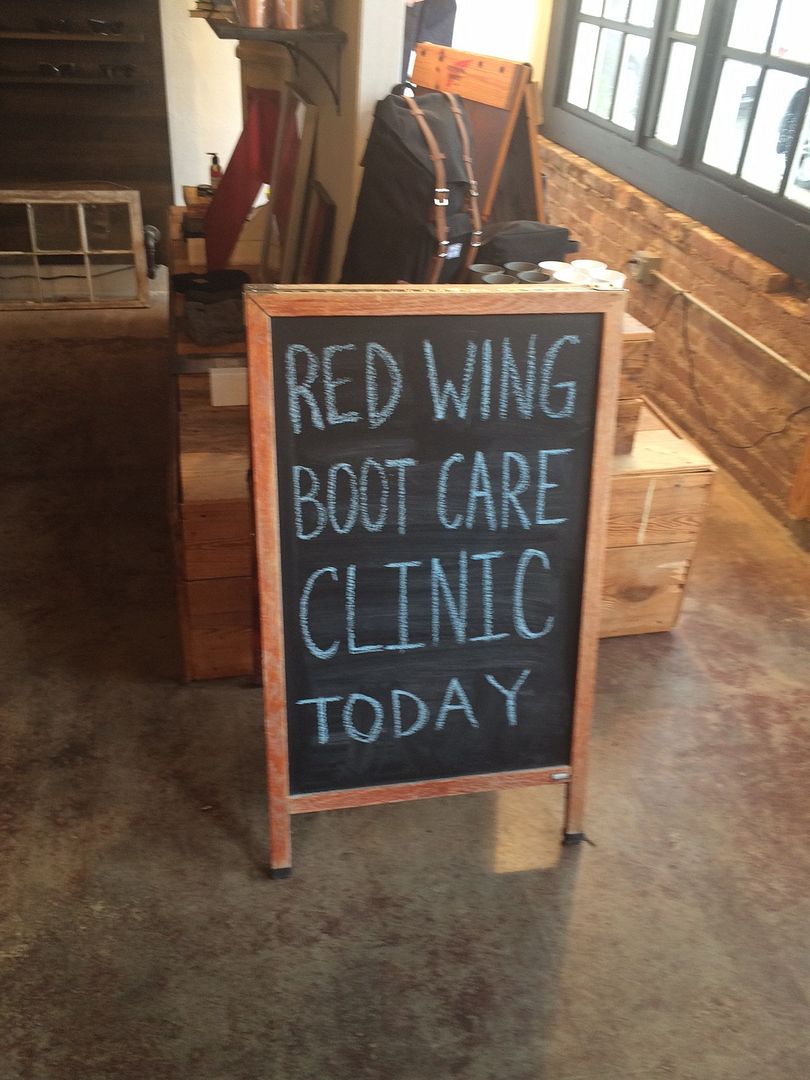 RED WING
BOOT CARE
CLINIC
TODAY